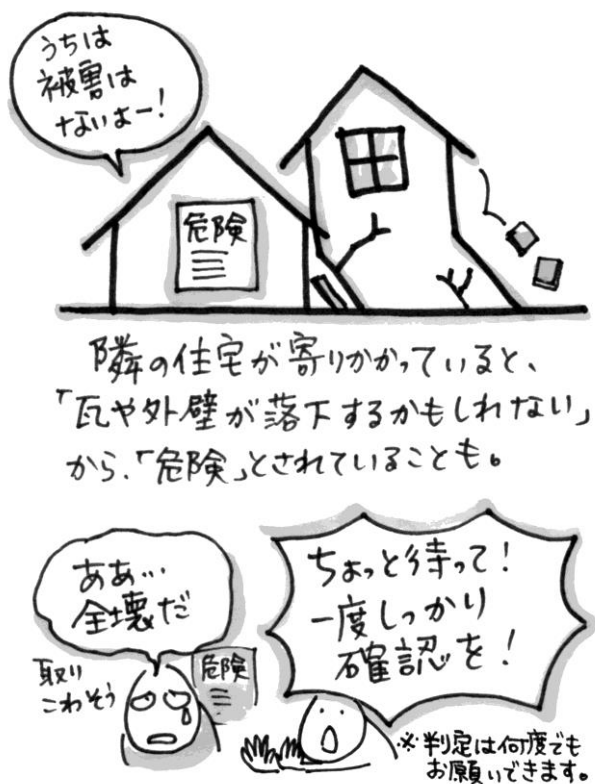 うちは
被害は
ないよー!
危険
隣の住宅が寄りかかっていると、
「瓦や外壁が落下するかもしれない」
から、「危険」とされていることも。
ああ…
全壊だ
取り
こわそう
危険
ちょっと待って!
一度しっかり
確認を!
※判定は何度でも
お願いできます。